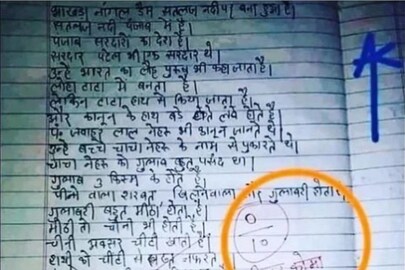 भाखडा नांगल डैम सतलज नदी पर बना हुआ है।
सतलज नदी पंजाब में है।
पंजाब सरदारों का देश है।
सरदार पटेल भी एक सरदार थे।
उन्हें भारत का लौह पुरुष भी कहा जाता है।
लोहा टाटा में बनता है।
लेकिन टाटा हाथ से किया जाता है।
और कानून के हाथ बडे लंबे होते है।
पं. जवाहर लाल नेहरू भी कानून जानते थे।
उन्हें बच्चे चाचा नेहरू के नाम से पुकारते थे।
चाचा नेहरू को गुलाब बहुत पसंद था।
गुलाब 3 किस्म के होते है।
चीनी वाला शरबत और गुलाबरी होता
गुलाबरी बहुत मीठा होता है।
मीठी तो चीनी भी होती है।
चीनी अक्सर चींटी खाती है।
हाथी को चींटी से बहुत नफरत
0
10
AK